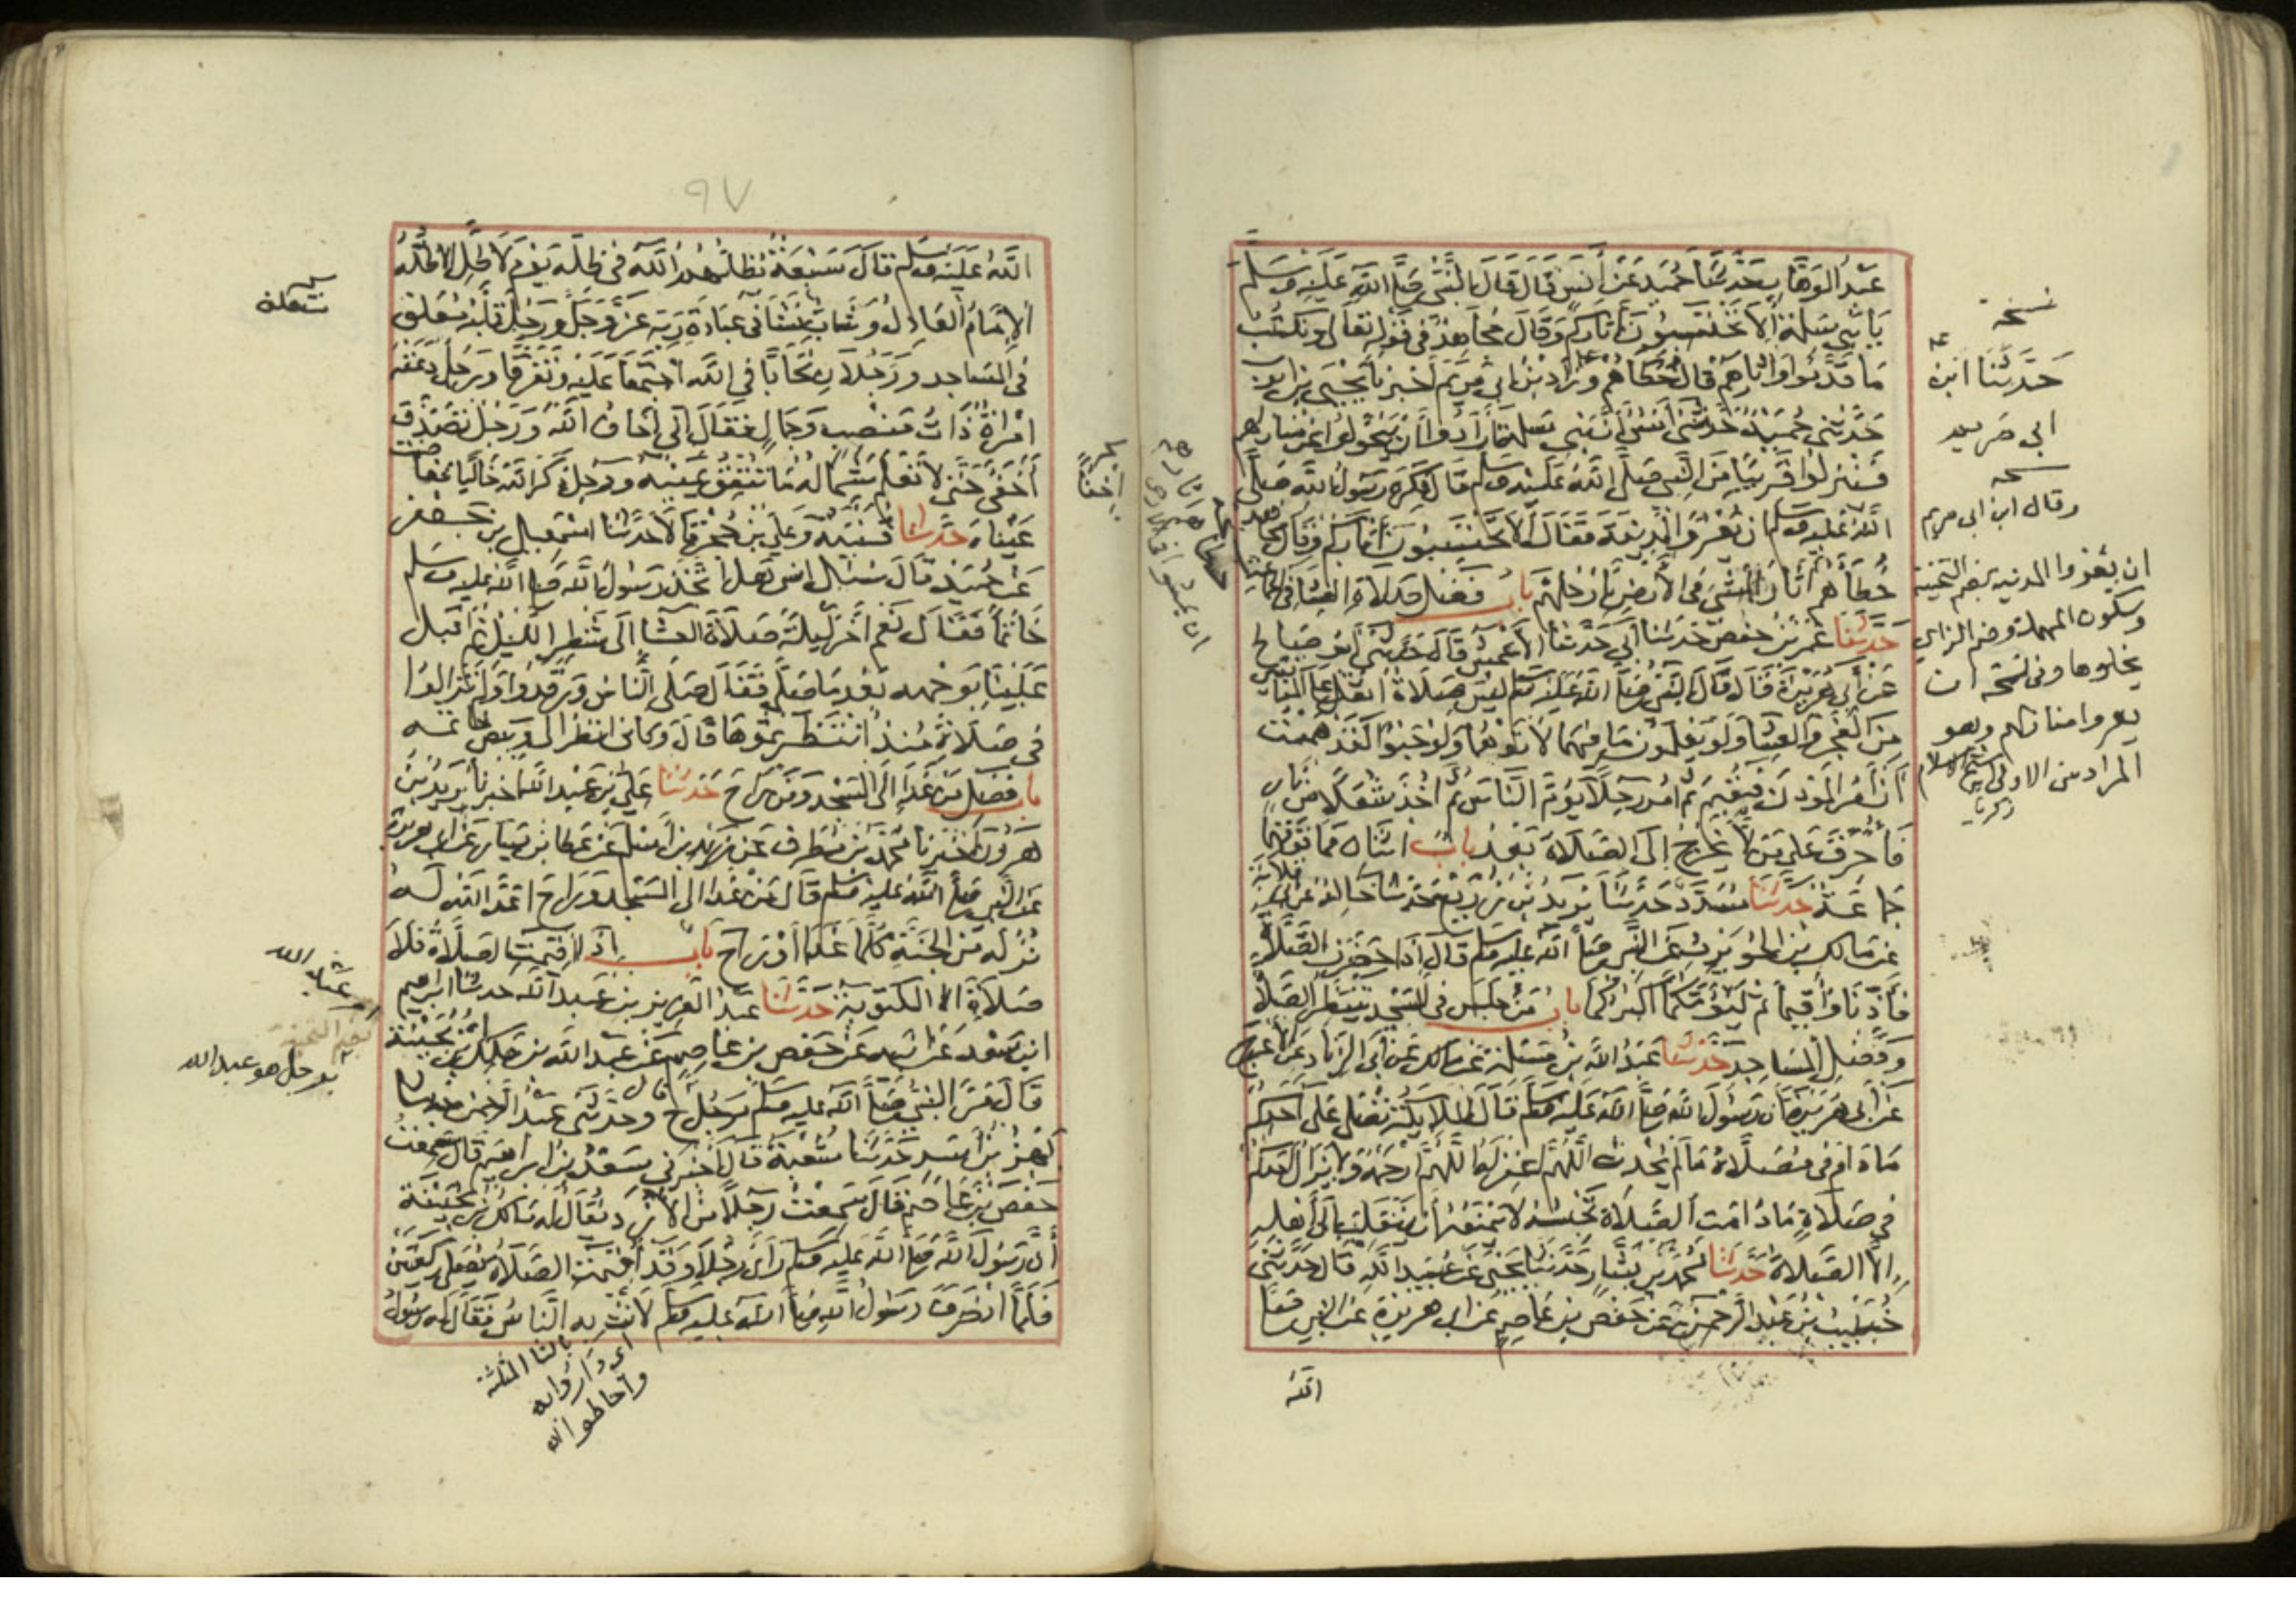 عَبْدُ الوَهَّابِ حَدَّثَنَا حُمَيْد عَنْ أَنَسٍ قَالَ قَالَ النَّبِيُّ صَلَّى اللَّهُ عَلَيْهِ وَسَلَّمَ
يَا بَنِي سَلِمَةَ أَلاَ تَحْتَسِبُونَ آثَارَكُمْ وَقَالَ مُجَاهِدٌ فِي قَوْلِهِ تَعَالَى وَنَكْتُبُ
مَا قَدَّمُوا وَآثَارَهُمْ قَالَ خُطَاهُمْ وَزَادَ ابْنُ أَبِي مَرْيَمَ أَخْبَرَنَا يَحْيَى بْنُ أَيُّوبَ
حَدَّثَنِي حُمَيْدٌ حَدَّثَنِي أَنَسٌ أَنَّ بَنِي سَلِمَةَ أَرَادُوا أَنْ يَتَحَوَّلُوا عَنْ مَنَازِلِهِمْ
فَيَنْزِلُوا قَرِيبًا مِنَ النَّبِيِّ صَلَّى اللَّهُ عَلَيْهِ وَسَلَّمَ قَالَ فَكَرِهَ رَسُولُ اللَّهِ صَلَّى
اللَّهُ عَلَيْهِ وَسَلَّمَ أَنْ يُعْرُوا الْمَدِينَةَ فَقَالَ أَلاَ تَحْتَسِبُونَ آثَارَكُمْ وَقَالَ مجاهد
خُطَاهُمْ آثَارُ الْمَشْيِ فِي الأَرْضِ بِأَرْجُلِهِمْ بَابُ فَضْلِ صَلاَةِ الْعِشَاءِ فِي الجماعة
حَدَّثَنَا عُمَرُ بْنُ حَفْصٍ حَدَّثَنَا أَبِي حَدَّثَنَا الأَعْمَشُ قَالَ حَدَّثَنِي أَبُو صَالِحٍ
عَنْ أَبِي هُرَيْرَةَ قَالَ قَالَ النَّبِيُّ صَلَّى اللَّهُ عَلَيْهِ وَسَلَّمَ لَيْسَ صَلاَةٌ أَثْقَلَ عَلَى الْمُنَافِقِينَ
مِنَ الْفَجْرِ وَالْعِشَاءِ وَلَوْ يَعْلَمُونَ مَا فِيهِمَا لأَتَوْهُمَا وَلَوْ حَبْوًا لَقَدْ هَمَمْتُ
أَنْ آمُرَ الْمُؤَذِّنَ فَيُقِيمَ ثُمَّ آمُرَ رَجُلاً يَؤُمُّ النَّاسَ ثُمَّ آخُذَ شُعَلاً مِنْ نَارٍ
فَأُحَرِّقَ عَلَى مَنْ لاَ يَخْرُجُ إِلَى الصَّلاَةِ بَعْدُ بَابٌ اثْنَانِ فَمَا فَوْقَهُمَا
جَمَاعَةٌ حَدَّثَنَا مُسَدَّدٌ حَدَّثَنَا يَزِيدُ بْنُ زُرَيْعٍ حَدَّثَنَا خَالِدٌ عَنْ أبي قلابة
عَنْ مَالِكِ بْنِ الْحُوَيْرِثِ عَنِ النَّبِيِّ صَلَّى اللَّهُ عَلَيْهِ وَسَلَّمَ قَالَ إِذَا حَضَرَتِ الصَّلاَةُ
فَأَذِّنَا وَأَقِيمَا ثُمَّ لْيَؤُمَّكُمَا أَكْبَرُكُمَا بَابُ مَنْ جَلَسَ فِي الْمَسْجِدِ يَنْتَظِرُ الصَّلاَةَ
وَفَضْلِ الْمَسَاجِدِ حَدَّثَنَا عَبْدُ اللَّهِ بْنُ مَسْلَمَةَ عَنْ مَالِكٍ عَنْ أَبِي الزِّنَادِ عَنِ الأَعْرَجِ
عَنْ أَبِي هُرَيْرَةَ أَنَّ رَسُولَ اللَّهِ صَلَّى اللَّهُ عَلَيْهِ وَسَلَّمَ قَالَ الْمَلاَئِكَةُ تُصَلِّي عَلَى أَحَدِكُمْ
مَا دَامَ فِي مُصَلاَّهُ مَا لَمْ يُحْدِثْ اللَّهُمَّ اغْفِرْ لَهُ اللَّهُمَّ ارْحَمْهُ وَلاَ يَزَالُ أَحَدُكُمْ
فِي صَلاَةٍ مَا دَامَتِ الصَّلاَةُ تَحْبِسُهُ لاَ يَمْنَعُهُ أَنْ يَنْقَلِبَ إِلَى أَهْلِهِ
إِلاَّ الصَّلاَةُ حَدَّثَنَا مُحَمَّدُ بْنُ بَشَّارٍ حَدَّثَنَا يَحْيَى عَنْ عُبَيْدِ اللَّهِ قَالَ حَدَّثَنِي
خُبَيْبُ بْنُ عَبْدِ الرَّحْمَنِ عَنْ حَفْصِ بْنِ عَاصِمٍ عَنْ أَبِي هُرَيْرَةَ عَنِ النَّبِيِّ صَلَّى
الله
نسخة
حَدَّثَنَا ابن
ابي مريم
نسخه
وقال ابن ابي مريم
ان يعروا المدينة بضم التحتية
وسكون المهملة وضم الراء اي
يخلوها وفي نسخة ان
يعروا منازلهم وهو
المراد من الاولى شيخ الاسلام
زكريا
٩٧
اللَّهُ عَلَيْهِ وَسَلَّمَ قَالَ سَبْعَةٌ يُظِلُّهُمُ اللَّهُ فِي ظِلِّهِ يَوْمَ لاَ ظِلَّ إِلاَّ ظِلُّهُ
الإِمَامُ الْعَادِلُ وَشَابٌّ نَشَأَ فِي عِبَادَةِ رَبِّهِ عَزَّ وَجَلَّ وَرَجُلٌ قَلْبُهُ مُعَلَّقٌ
فِي الْمَسَاجِدِ وَرَجُلاَنِ تَحَابَّا فِي اللَّهِ اجْتَمَعَا عَلَيْهِ وَتَفَرَّقَا وَرَجُلٌ دَعَتْهُ
امْرَأَةٌ ذَاتُ مَنْصِبٍ وَجَمَالٍ فَقَالَ إِنِّي أَخَافُ اللَّهَ وَرَجُلٌ تَصَدَّقَ
أَخْفَى حَتَّى لاَ تَعْلَمَ شِمَالُهُ مَا تُنْفِقُ يَمِينُهُ وَرَجُلٌ ذَكَرَ اللَّهَ خَالِيًا ففاضت
عَيْنَاهُ حَدَّثَنَا قُتَيْبَةُ وَعَلِيُّ بْنُ حُجْرٍ قَالاَ حَدَّثَنَا إِسْمَعِيلُ بْنُ جَعْفَرٍ
عَنْ حُمَيْدٍ قَالَ سُئِلَ أَنَسٌ هَلِ اتَّخَذَ رَسُولُ اللَّهِ صَلَّى اللَّهُ عَلَيْهِ وَسَلَّمَ
خَاتَمًا فَقَالَ نَعَمْ أَخَّرَ لَيْلَةً صَلاَةَ الْعِشَاءِ إِلَى شَطْرِ اللَّيْلِ ثُمَّ أَقْبَلَ
عَلَيْنَا بِوَجْهِهِ بَعْدَ مَا صَلَّى فَقَالَ صَلَّى النَّاسُ وَرَقَدُوا وَلَمْ تَزَالُوا
فِي صَلاَةٍ مُنْذُ انْتَظَرْتُمُوهَا قَالَ وَكَأَنِّي أَنْظُرُ إِلَى وَبِيصِ خاتمه
باب فَضْلِ مَنْ غَدَا إِلَى الْمَسْجِدِ وَمَنْ رَاحَ حَدَّثَنَا عَلِيُّ بْنُ عَبْدِ اللَّهِ أخبرنا يَزِيدُ بْنُ
هَرُونَ أَخْبَرَنَا مُحَمَّدُ بْنُ مُطَرِّفٍ عَنْ زَيْدِ بْنِ أَسْلَمَ عَنْ عَطَاءِ بْنِ يَسَارٍ عَنْ أَبِي هُرَيْرَةَ
عَنِ النَّبِيِّ صَلَّى اللَّهُ عَلَيْهِ وَسَلَّمَ قَالَ مَنْ غَدَا إِلَى الْمَسْجِدِ وَرَاحَ أَعَدَّ اللَّهُ لَهُ
نُزُلَهُ مِنَ الْجَنَّةِ كُلَّمَا غَدَا أَوْ رَاحَ بَابٌ إِذَا أُقِيمَتِ الصَّلاَةُ فَلاَ
صَلاَةَ إِلاَّ الْمَكْتُوبَةَ حَدَّثَنَا عَبْدُ الْعَزِيزِ بْنُ عَبْدِ اللَّهِ حَدَّثَنَا إِبْرَاهِيمُ
ابْنُ سَعْدٍ عَنْ أَبِيهِ عَنْ حَفْصِ بْنِ عَاصِمٍ عَنْ عَبْدِ اللَّهِ بْنِ مَالِكٍ ابْنِ بُحَيْنَةَ
قَالَ مَرَّ النَّبِيُّ صَلَّى اللَّهُ عَلَيْهِ وَسَلَّمَ بِرَجُلٍ ح قال وَحَدَّثَنِي عَبْدُ الرَّحْمَنِ حدثنا
بَهْزُ بْنُ أَسَدٍ حَدَّثَنَا شُعْبَةُ قَالَ أَخْبَرَنِي سَعْدُ بْنُ إِبْرَاهِيمَ قَالَ سَمِعْتُ
حَفْصَ بْنَ عَاصِمٍ قَالَ سَمِعْتُ رَجُلاً مِنَ الأَزْدِ يُقَالُ لَهُ مَالِكُ بْنُ بُحَيْنَةَ
أَنَّ رَسُولَ اللَّهِ صَلَّى اللَّهُ عَلَيْهِ وَسَلَّمَ رَأَى رَجُلاً وَقَدْ أُقِيمَتِ الصَّلاَةُ يُصَلِّي رَكْعَتَيْنِ
فَلَمَّا انْصَرَفَ رَسُولُ اللَّهِ صَلَّى اللَّهُ عَلَيْهِ وَسَلَّمَ لاَثَ بِهِ النَّاسُ فَقَالَ لَهُ رَسُولُ
برجل هو عبد الله
بالثا المثلثة
اي داروا به
واحاطوا به